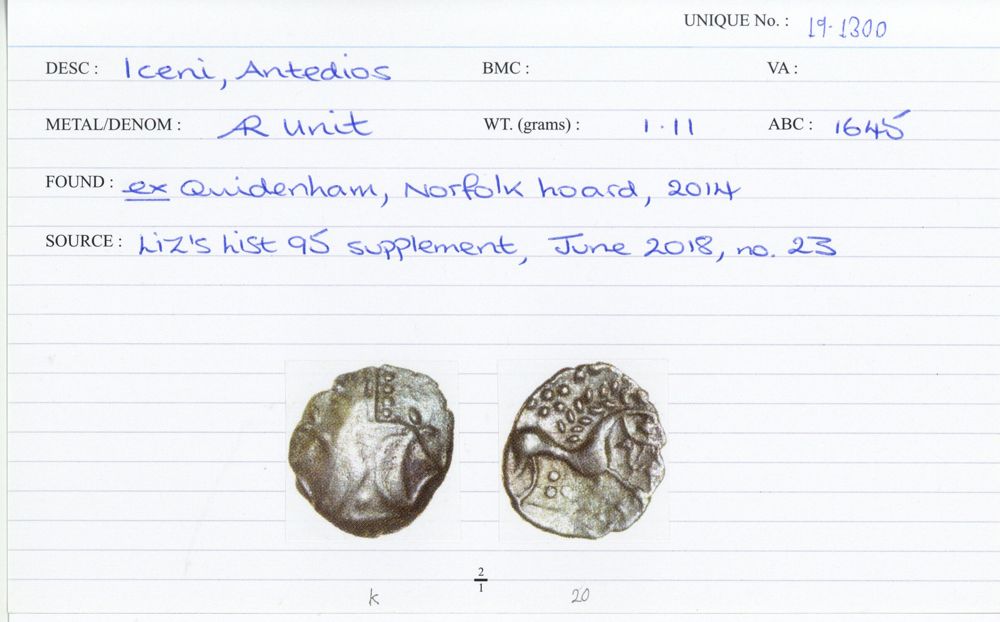 UNIQUE No. : 19-1300
DESC : Iceni, Antedios BMC : VA :
METAL/DENOM : AR unit WT. (grams) : 1.11 ABC : 1645
FOUND : ex Quidenham, Norfolk hoard, 2014
SOURCE : Liz's List 95 supplement, June 2018, no. 23
2
1
k 20